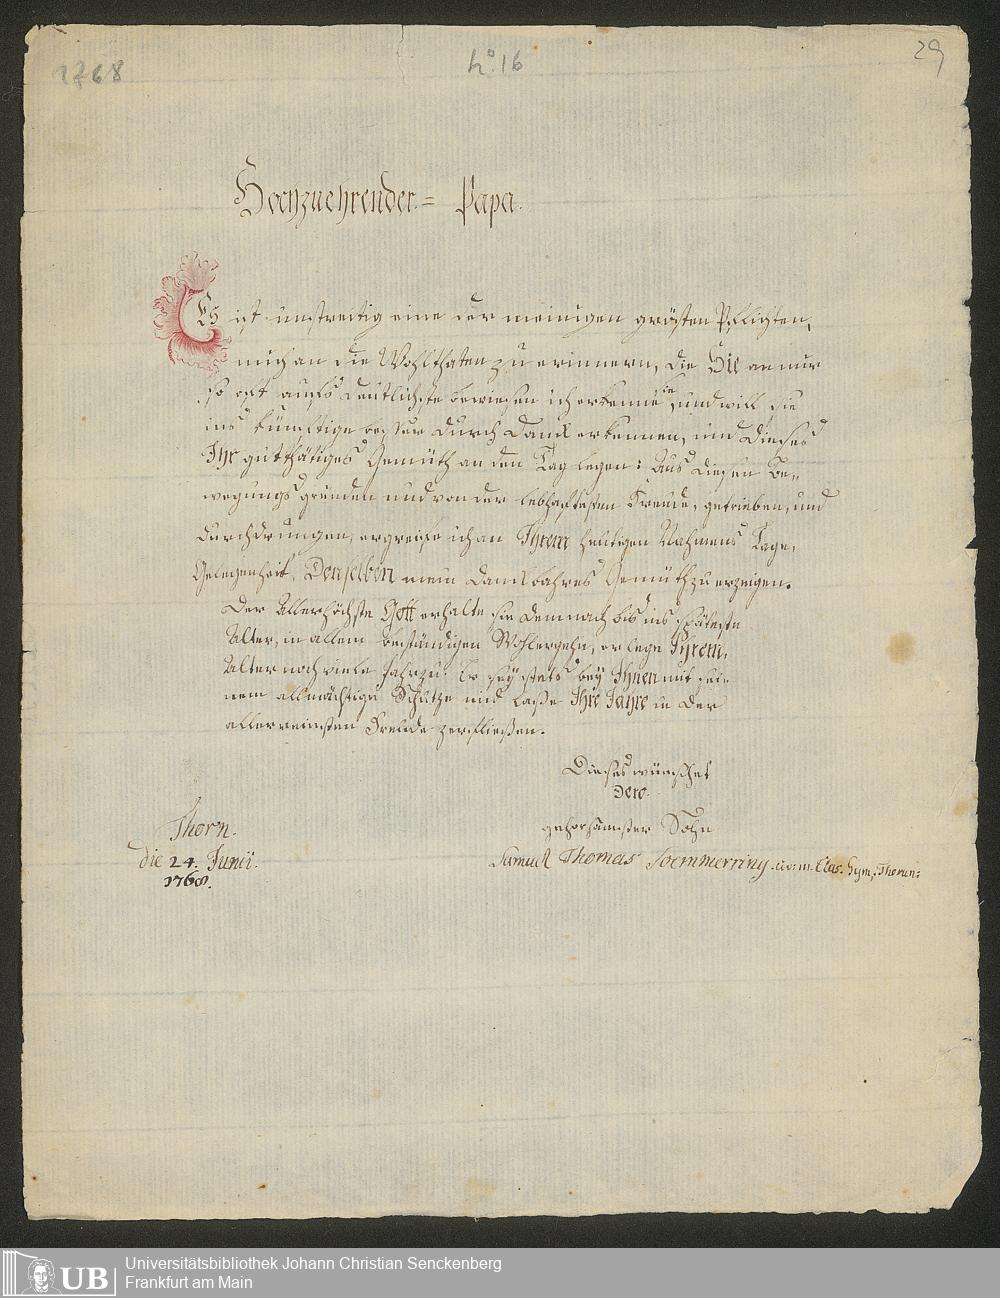 1768
No. 16
29
Hochzuehrender = Papa.
Es ist unstreitig eine der meinigen grösten Pfligten,
mich an die Wohlthaten zu erinnern, die Sie an mir
so oft aufs deutlichste bewiesen ich erkenne sie, und will sie
ins künftige besser durch Danck erkennen, und dieses
Ihr gutthätiges Gemüth an den Tag legen: Aus diesen Be=
wegungs gründen und von der lebhaftesten Freude, getrieben, und
durchdrungen, ergreife ich an Ihrem heutigen Nahmens Tage,
Gelegenheit, Denselben mein danckbahres Gemüth zu erzeigen.
Der Allerhöchste Gott erhalte sie demnach bis ins späteste
Alter, in allem beständigen Wohlergehn, er lege Ihrem,
Alter noch viele Jahr zu. Er sey stets bey Ihnen mit sei=
nem allmächtigen Schutze und laße Ihre Jahre in der
allerreinsten Freude zerfließen.
Dieses wünschet
Dero
gehorsamster Sohn
Thorn.
Samuel Thomas Soemmerring Clas. Gym. Thorun:
die 24. Junii.
1768.
UB
Universitätsbibliothek Johann Christian Senckenberg
Frankfurt am Main